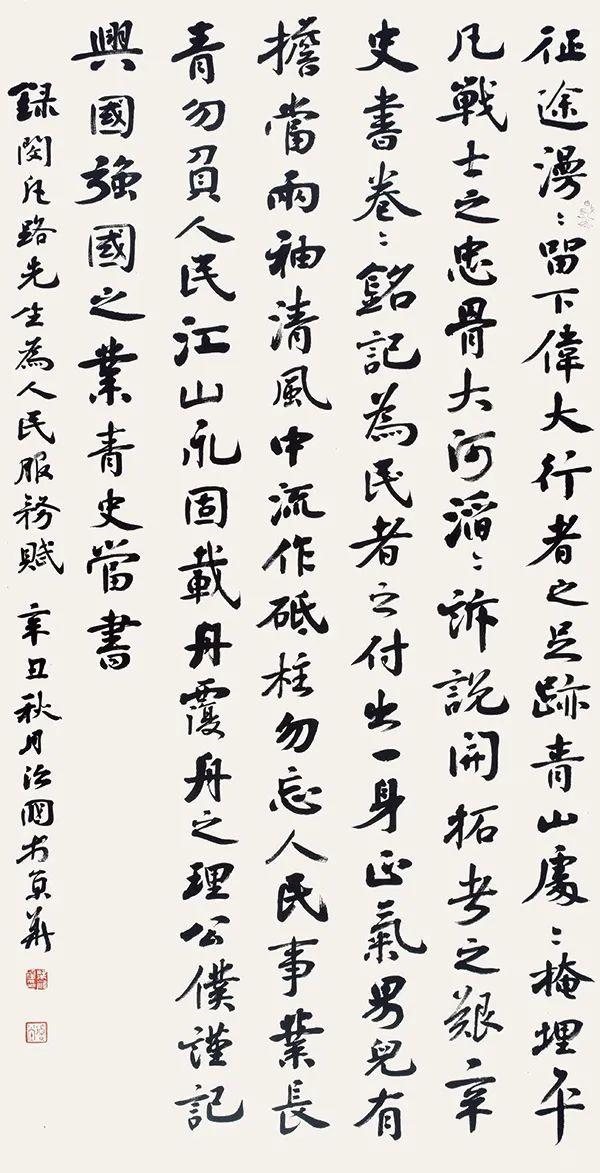 征途漫〻留下偉大行者之足跡青山處〻掩埋平
凡戰士之忠骨大河滔〻訴說開拓者之艱辛
史書卷〻銘記為民者之付出一身正氣男兒有
擔當兩袖清風中流作砥柱勿忘人民事業長
青勿負人民江山永固載舟覆舟之理公僕謹記
興國強國之業青史當書
録閔凡路先生為人民服務賦 辛丑秋月治國书京華